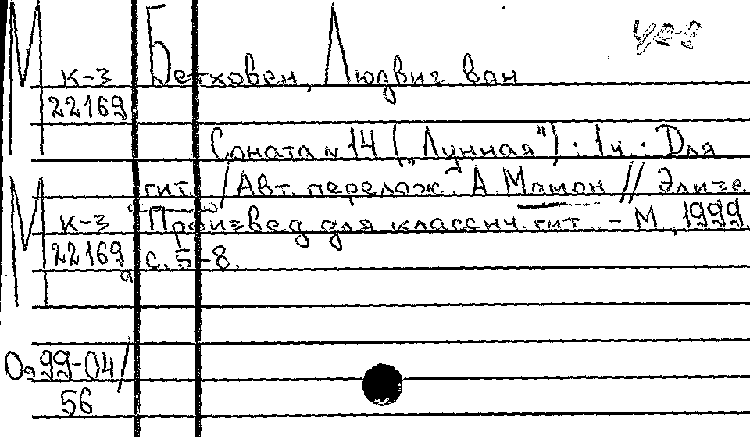 М К-3 Бетховен, Людвиг ван
22169
Соната № 14 („Лунная“) : 1 ч. : Для
гит. / Авт. перелож. А. Мамон // Элизе
М К-3 Произвед для классич. гит. – М., 1999.
22169 с. 5-8.
а
Оа 99-04/
56